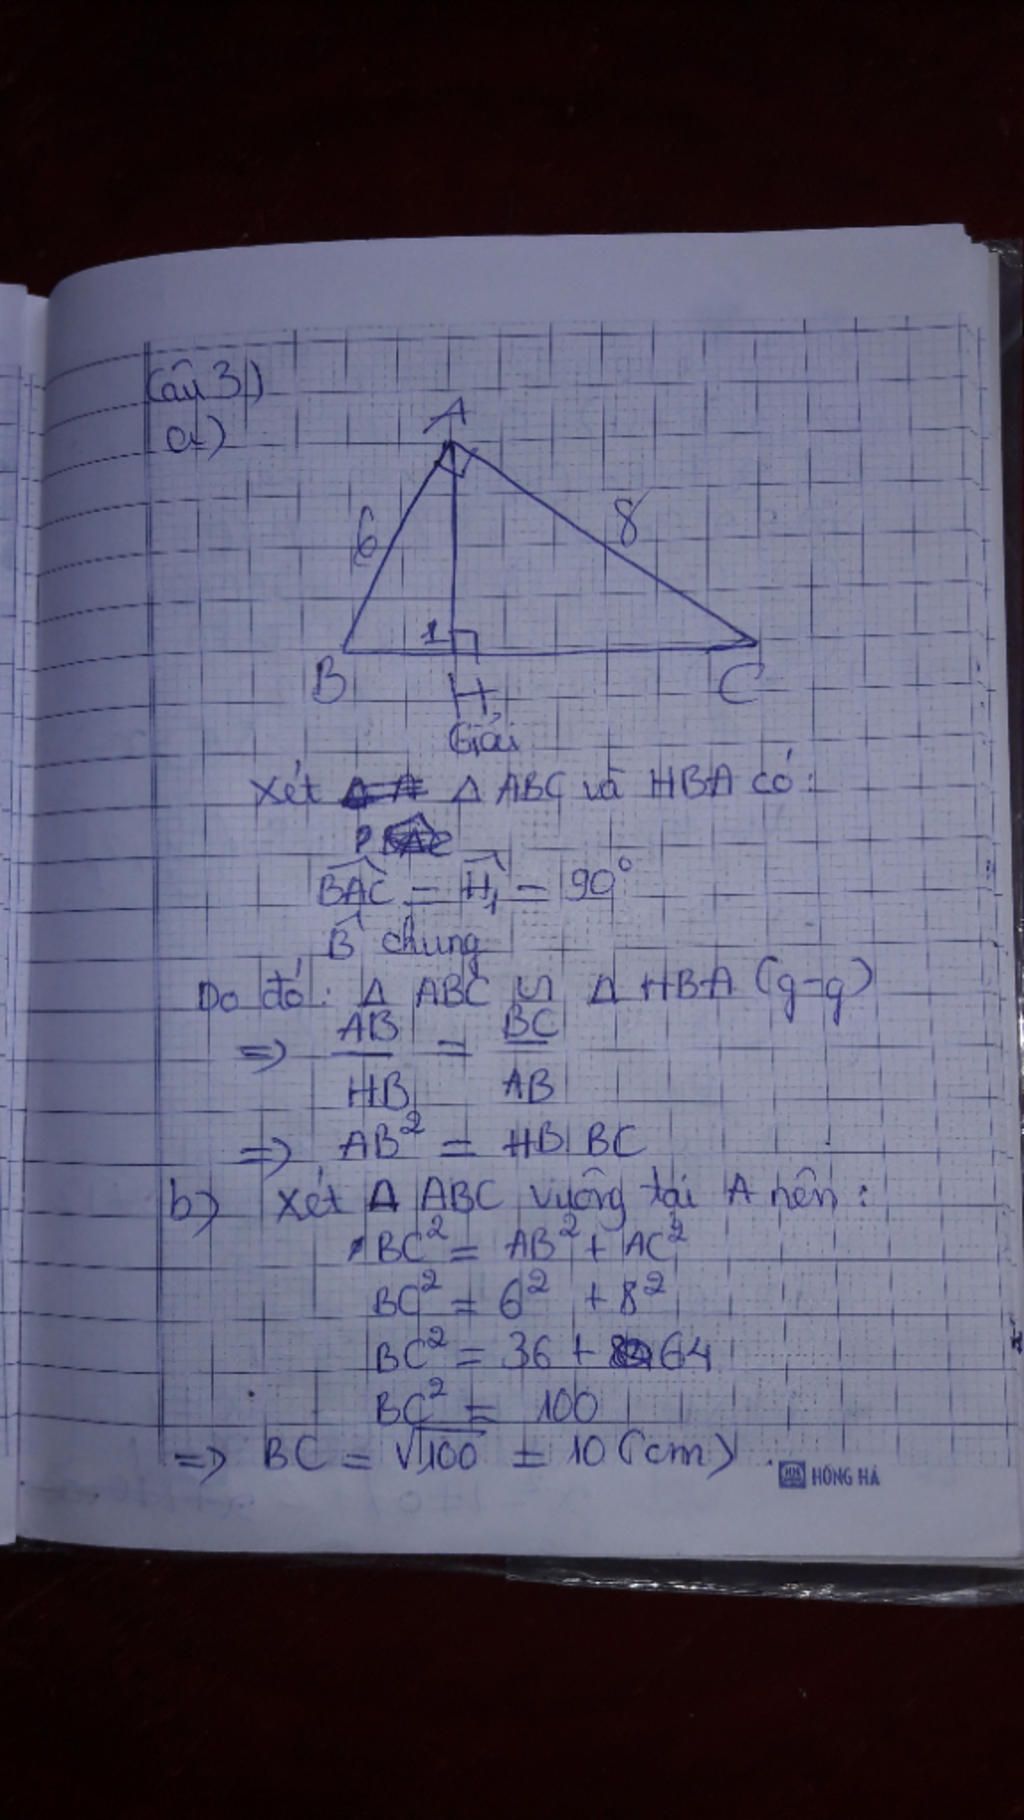 Câu 3)
a)
A
6
8
1
B
H
C
Giải
Xét Δ ABC và HBA có:
BAC = H1 = 90°
B chung
Do đó: Δ ABC ∽ Δ HBA (g-g)
=> AB/HB = BC/AB
=> AB² = HB.BC
b) Xét Δ ABC vuông tại A nên:
BC² = AB² + AC²
BC² = 6² + 8²
BC² = 36 + 64
BC² = 100
=> BC = √100 = 10 (cm)
HỒNG HÀ